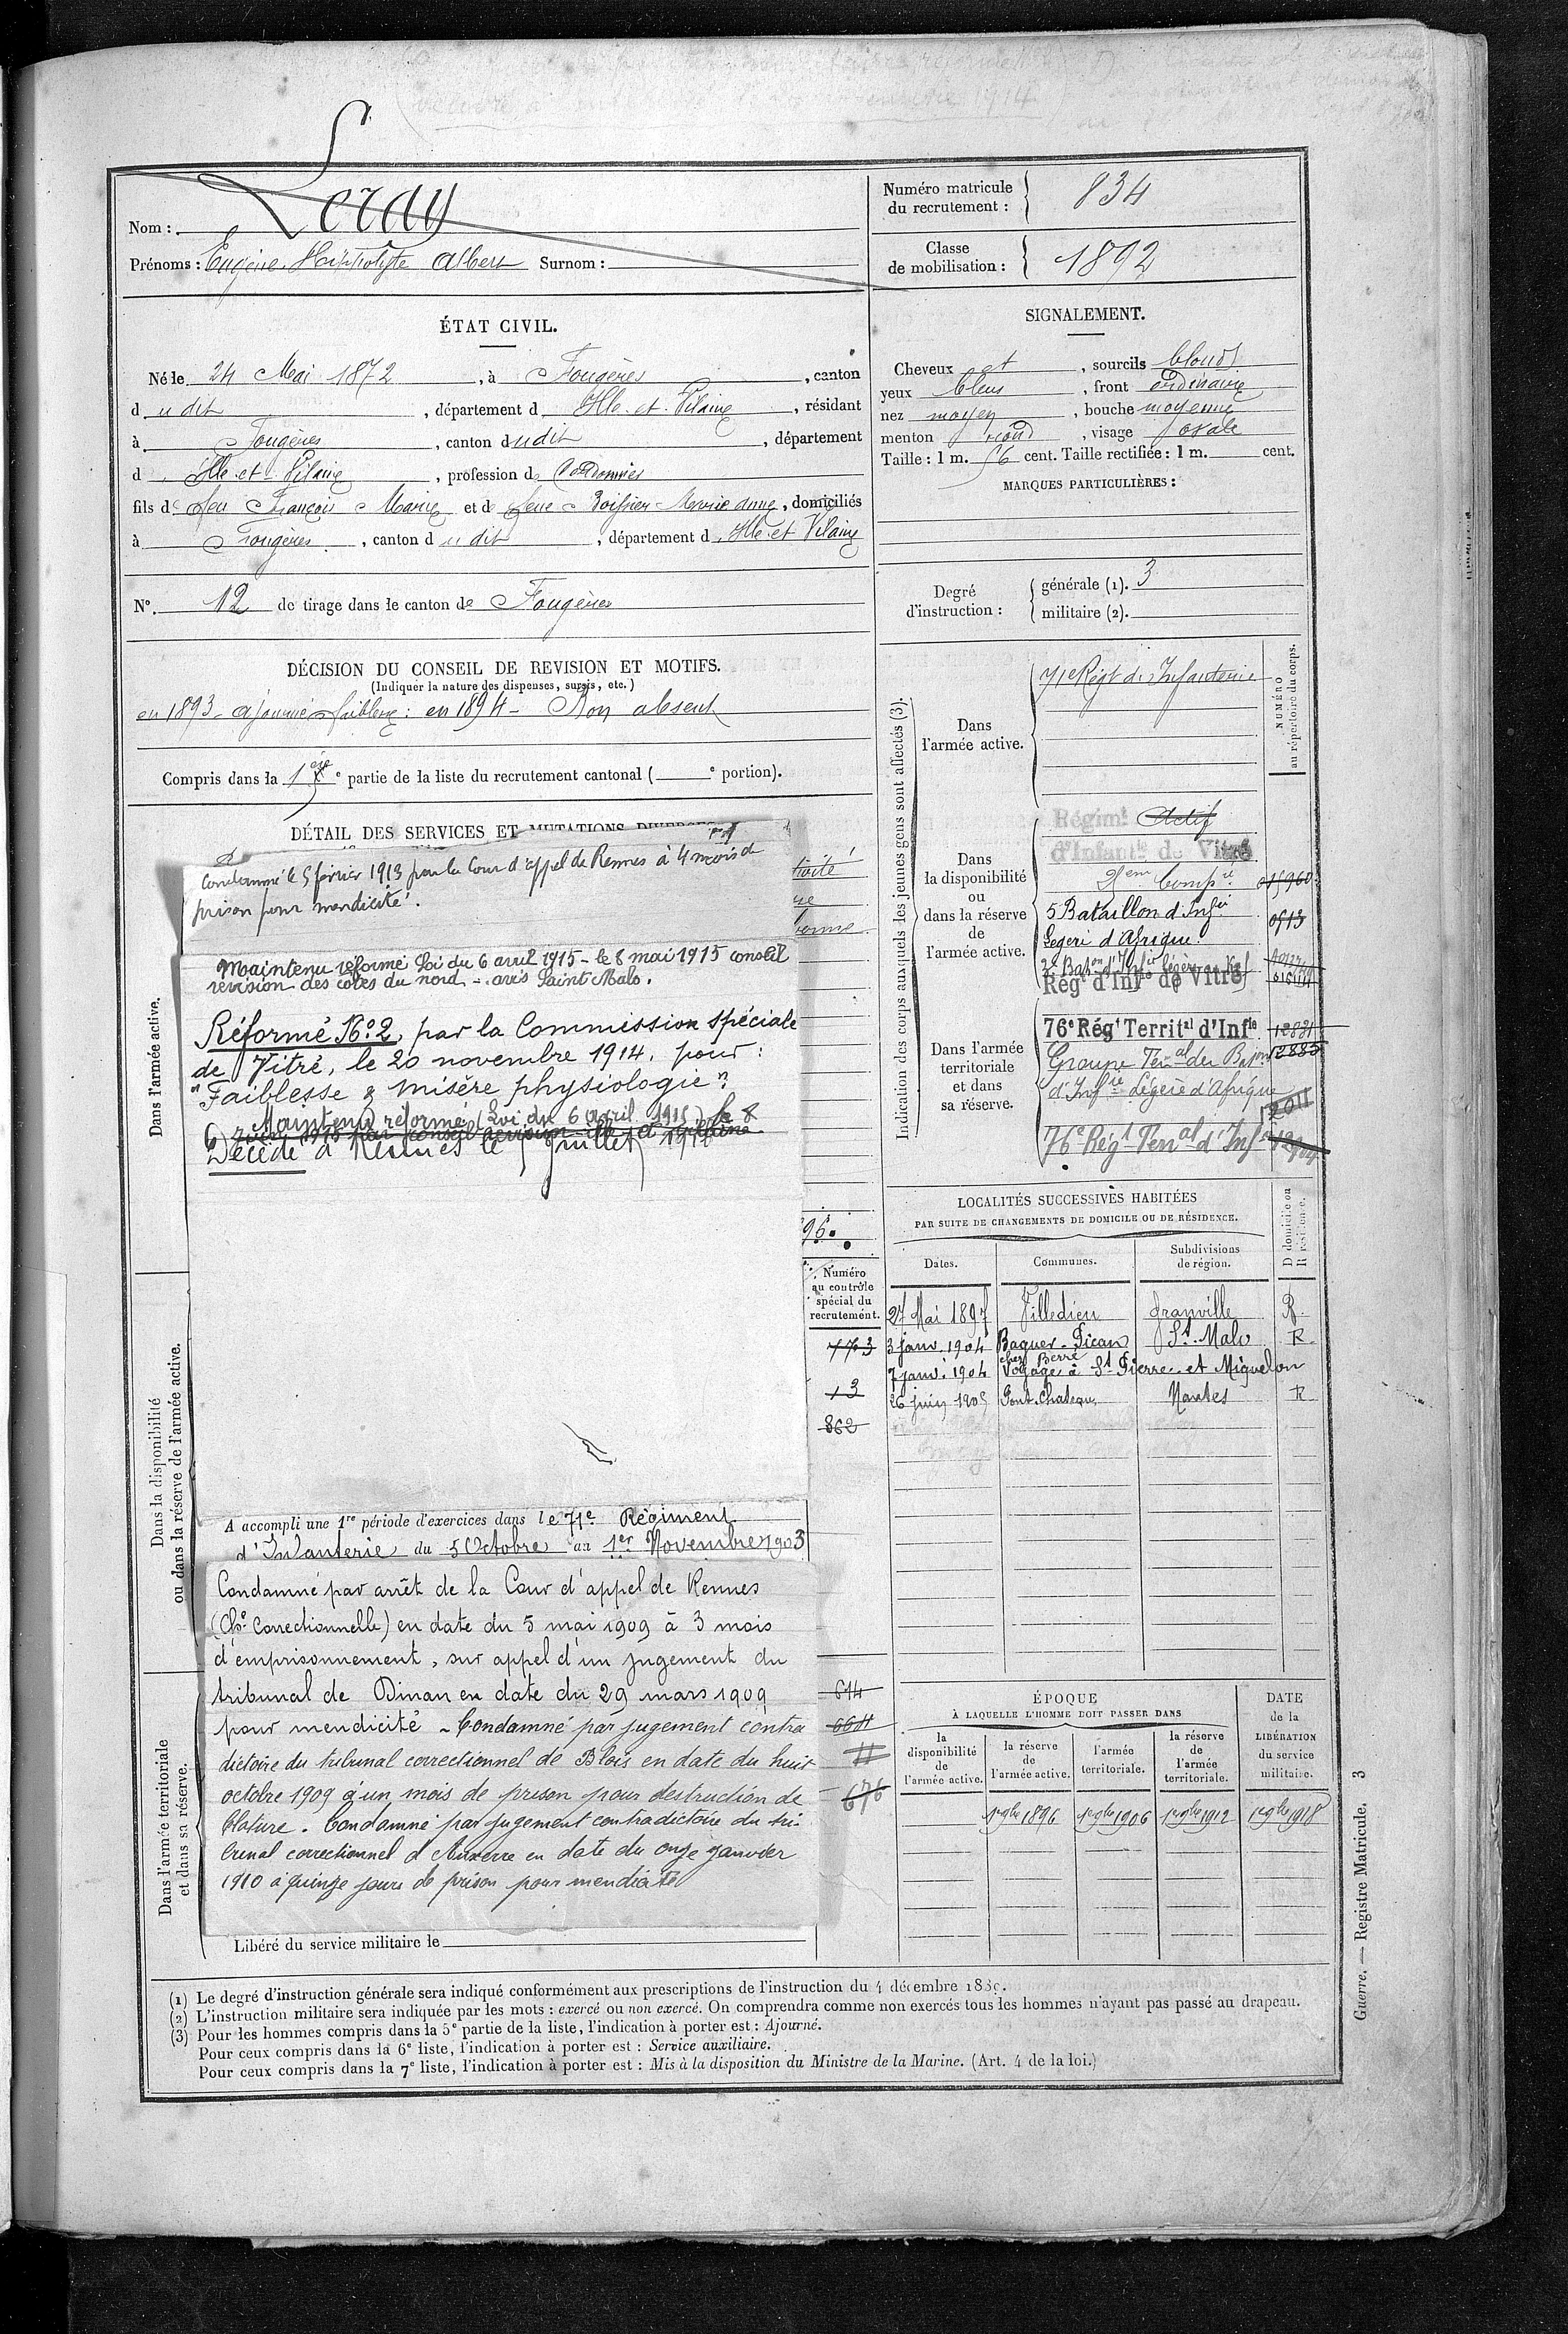 Nom : Leray
Prénoms : Eugène Hippolyte Albert Surnom :
Numéro matricule
du recrutement : 834
Classe
de mobilisation : 1892
ÉTAT CIVIL.
Né le 24 Mai 1872, à Fougères, canton
dudit, département d'Ille-et-Vilaine, résidant
à Fougères, canton dudit, département
d'Ille-et-Vilaine, profession de Cordonnier
fils de feu François Marie et de feue Boissier Marie Anne, domiciliés
à Fougères, canton dudit, département d'Ille-et-Vilaine
N° 12 de tirage dans le canton de Fougères
DÉCISION DU CONSEIL DE REVISION ET MOTIFS.
(Indiquer la nature des dispenses, sursis, etc.)
en 1893 - ajourné faiblesse : en 1894 - Bon absent
Compris dans la 1ère partie de la liste du recrutement cantonal ( e portion).
SIGNALEMENT.
Cheveux et, sourcils blonds
yeux bleus, front ordinaire
nez moyen, bouche moyenne
menton rond, visage ovale
Taille : 1 m. 56 cent. Taille rectifiée : 1 m. cent.
MARQUES PARTICULIÈRES :
Degré
d'instruction :
générale (1). 3
militaire (2).
DÉTAIL DES SERVICES ET MUTATIONS DIVERSES
Condamné le 5 février 1913 par la Cour d'appel de Rennes à 4 mois de
prison pour mendicité.
Maintenu réformé Loi du 6 avril 1915 - le 8 mai 1915 conseil
révision des côtes du nord - avis Saint Malo.
Réformé N° 2, par la Commission spéciale
de Vitré, le 20 novembre 1914, pour :
"Faiblesse & misère physiologie"
Maintenu réformé (Loi du 6 avril 1915) le 8
Décédé à Rennes le juillet
96.
Dans l'armée active.
Dans la disponibilité
ou dans la réserve de l'armée active.
Dans l'armée territoriale
et dans sa réserve.
Numéro
au contrôle
spécial du
recrutement.
13
862
614
664
11
676
A accompli une 1re période d'exercices dans le 71e Régiment
d'Infanterie du 5 Octobre au 1er Novembre 1903
Condamné par arrêt de la Cour d'appel de Rennes
(Ch. Correctionnelle) en date du 5 mai 1909 à 3 mois
d'emprisonnement, sur appel d'un jugement du
tribunal de Dinan en date du 29 mars 1909
pour mendicité - Condamné par jugement contra
dictoire du tribunal correctionnel de Blois en date du huit
octobre 1909 à un mois de prison pour destruction de
Clôture. Condamné par jugement contradictoire du tri-
bunal correctionnel d'Auxerre en date du onze janvier
1910 à quinze jours de prison pour mendicité
Libéré du service militaire le
Indication des corps auxquels les jeunes gens sont affectés (3).
NUMÉRO
au répertoire du corps.
Dans
l'armée active.
71e Régt d'Infanterie
Dans
la disponibilité
ou
dans la réserve
de
l'armée active.
Régimt Actif
d'Infantie de Vitré
5 Bataillon d'Infie 0513
Légère d'Afrique
Régt d'Infie de Vitré
Dans l'armée
territoriale
et dans
sa réserve.
76e Régt Territal d'Infie
Groupe Terral du Bajon
d'Infie Légère d'Afrique
76e Régt Terral d'Infie
LOCALITÉS SUCCESSIVES HABITÉES
PAR SUITE DE CHANGEMENTS DE DOMICILE OU DE RÉSIDENCE.
Dates. Communes. Subdivisions de région. D domicile ou R résidence.
27 Mai 1897 Villedieu Granville R.
3 janv. 1904 Baguer-Pican St Malo R
chez Berré
7 janv. 1904 Voyage à St Pierre et Miquelon
26 juin 1905 Pont-Château Nantes R
ÉPOQUE
À LAQUELLE L'HOMME DOIT PASSER DANS
DATE
de la
LIBÉRATION
du service
militaire.
la disponibilité de l'armée active.
la réserve de l'armée active.
l'armée territoriale.
la réserve de l'armée territoriale.
1er 9bre 1896 1er 9bre 1906 1er 9bre 1912 1er 9bre 1918
Guerre. — Registre Matricule. 3
(1) Le degré d'instruction générale sera indiqué conformément aux prescriptions de l'instruction du 4 décembre 1889.
(2) L'instruction militaire sera indiquée par les mots : exercé ou non exercé. On comprendra comme non exercés tous les hommes n'ayant pas passé au drapeau.
(3) Pour les hommes compris dans la 5e partie de la liste, l'indication à porter est : Ajourné.
Pour ceux compris dans la 6e liste, l'indication à porter est : Service auxiliaire.
Pour ceux compris dans la 7e liste, l'indication à porter est : Mis à la disposition du Ministre de la Marine. (Art. 4 de la loi.)